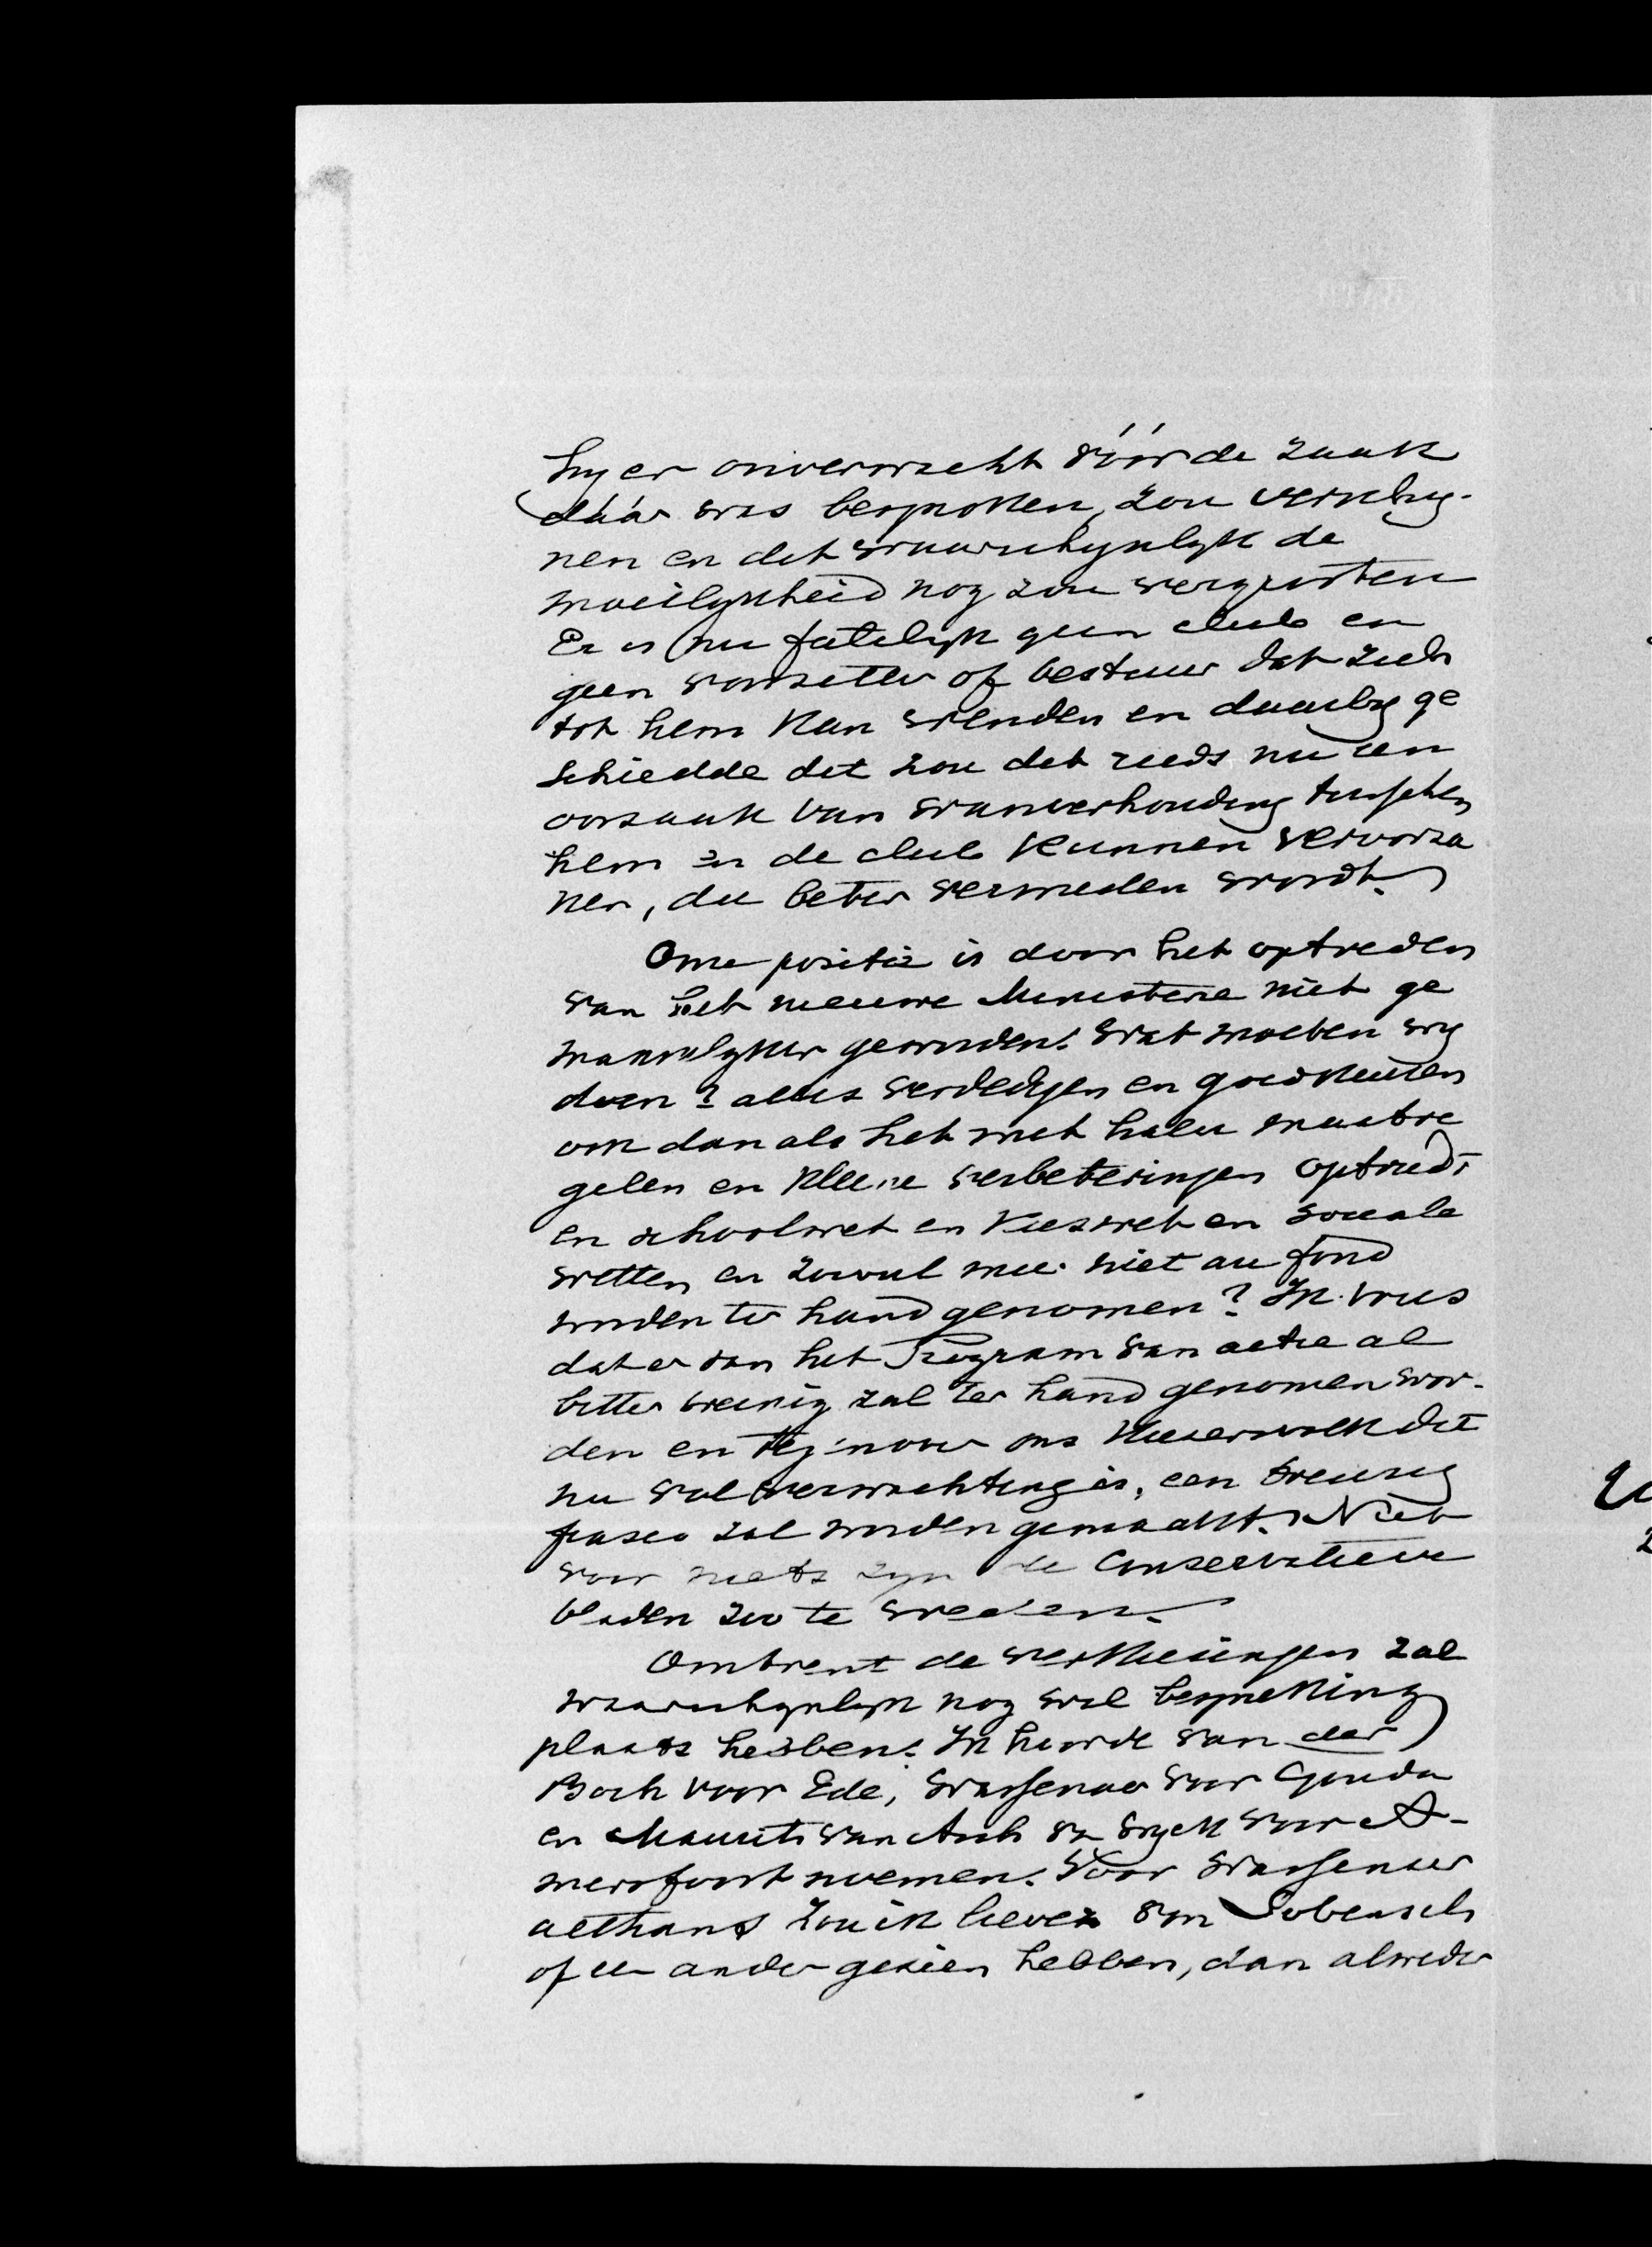 hij er onverwacht vóór de zaak
dáár was besproken, zou verschij-
nen en dit waarschijnlijk de
moeilijkheid nog zou vergrooten
Er is nu feitelijk geen club en
geen voorzitter of bestuur dat zich
tot hem kan wenden en daarbij ge
schiedde dit zou dit reeds nu een
oorzaak van wanverhouding tusschen
hem en de club kunnen veroorza
ken, die beter vermeden wordt.
Onze positie is door het optreden
van het nieuwe Ministerie niet ge
makkelijker geworden. Wat moeten wij
doen? alles verdedigen en goedkeuren
ook dan als het met halve maatre
gelen en kleine verbeteringen optreedt
en schoolwet en kieswet en sociale
wetten en zooveel meer niet au fond
worden ter hand genomen? Ik vrees
dat er van het Program van actie al
bitter weinig zal ter hand genomen wor-
den en tegenover ons kiesersvolk dat
nu vol verwachting is, een treurig
fiasco zal worden gemaakt. Niet
voor niets zijn de Conservatieve
bladen zoo te vreden.
Omtrent de verkiezingen zal
waarschijnlijk nog wel bespreking
plaats hebben. Ik hoorde van der
Borch voor Ede, Wassenaer voor Gouda
en Maurits van Asch v. Wyck voor A-
mersfoort noemen. Voor Wassenaer
althans zou ik liever van Lobensels
of een ander gezien hebben, dan alweder